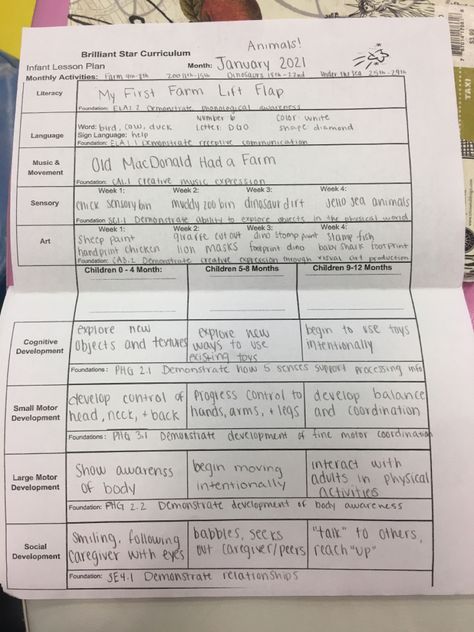 Animals!
Brilliant Star Curriculum
Infant Lesson Plan
Month: January 2021
Monthly Activities: Farm 4th-8th Zoo 11th-15th Dinosaurs 18th-22nd Under the Sea 25th-29th
Literacy
My First Farm Lift Flap
Foundation: ELA1.2 Demonstrate phonological awareness
Language
Number 6 Color: White
Word: bird, cow, duck Letter: D, O shape diamond
Sign Language: help
Foundation: ELA1.1 Demonstrate receptive communication
Music &
Movement
Old MacDonald Had a Farm
Foundation: CA1.1 Creative music expression
Sensory
Week 1: Week 2: Week 3: Week 4:
chick sensory bin muddy zoo bin dinosaur dirt jello sea animals
Foundation: SC1.1 Demonstrate ability to explore objects in the physical world
Art
Week 1: Week 2: Week 3: Week 4:
sheep paint giraffe cut out dino stomp paint stamp fish
handprint chicken lion masks footprint dino baby shark footprint
Foundation: CA3.2 Demonstrate creative expression through visual art production
Children 0 - 4 Month: Children 5-8 Months Children 9-12 Months
Cognitive
Development
explore new
objects and textures
explore new
ways to use
existing toys
begin to use toys
intentionally
Foundations: PHG 2.1 Demonstrate how 5 senses support processing info
Small Motor
Development
develop control of
head, neck, + back
Progress control to
hands, arms, + legs
develop balance
and coordination
Foundations: PHG 3.1 Demonstrate development of fine motor coordination
Large Motor
Development
Show awarenss
of body
begin moving
intentionally
interact with
adults in physical
activities
Foundation: PHG 2.2 Demonstrate development of body awareness
Social
Development
smiling, following
caregiver with eyes
babbles, seeks
out caregiver/peers
"talk" to others,
reach "up"
Foundation: SE4.1 Demonstrate relationships
TAXI